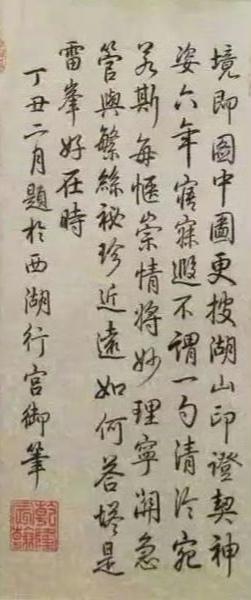 境即圖中圖更披湖山印證契神
姿六年寤寐遐不謂一勺清泠宛
若斯每愜崇情將妙理寧關急
管與繁絲祕珍近遠如何荅墖是
雷峯好在時
丁丑二月題於西湖行宮御筆
乾隆宸翰